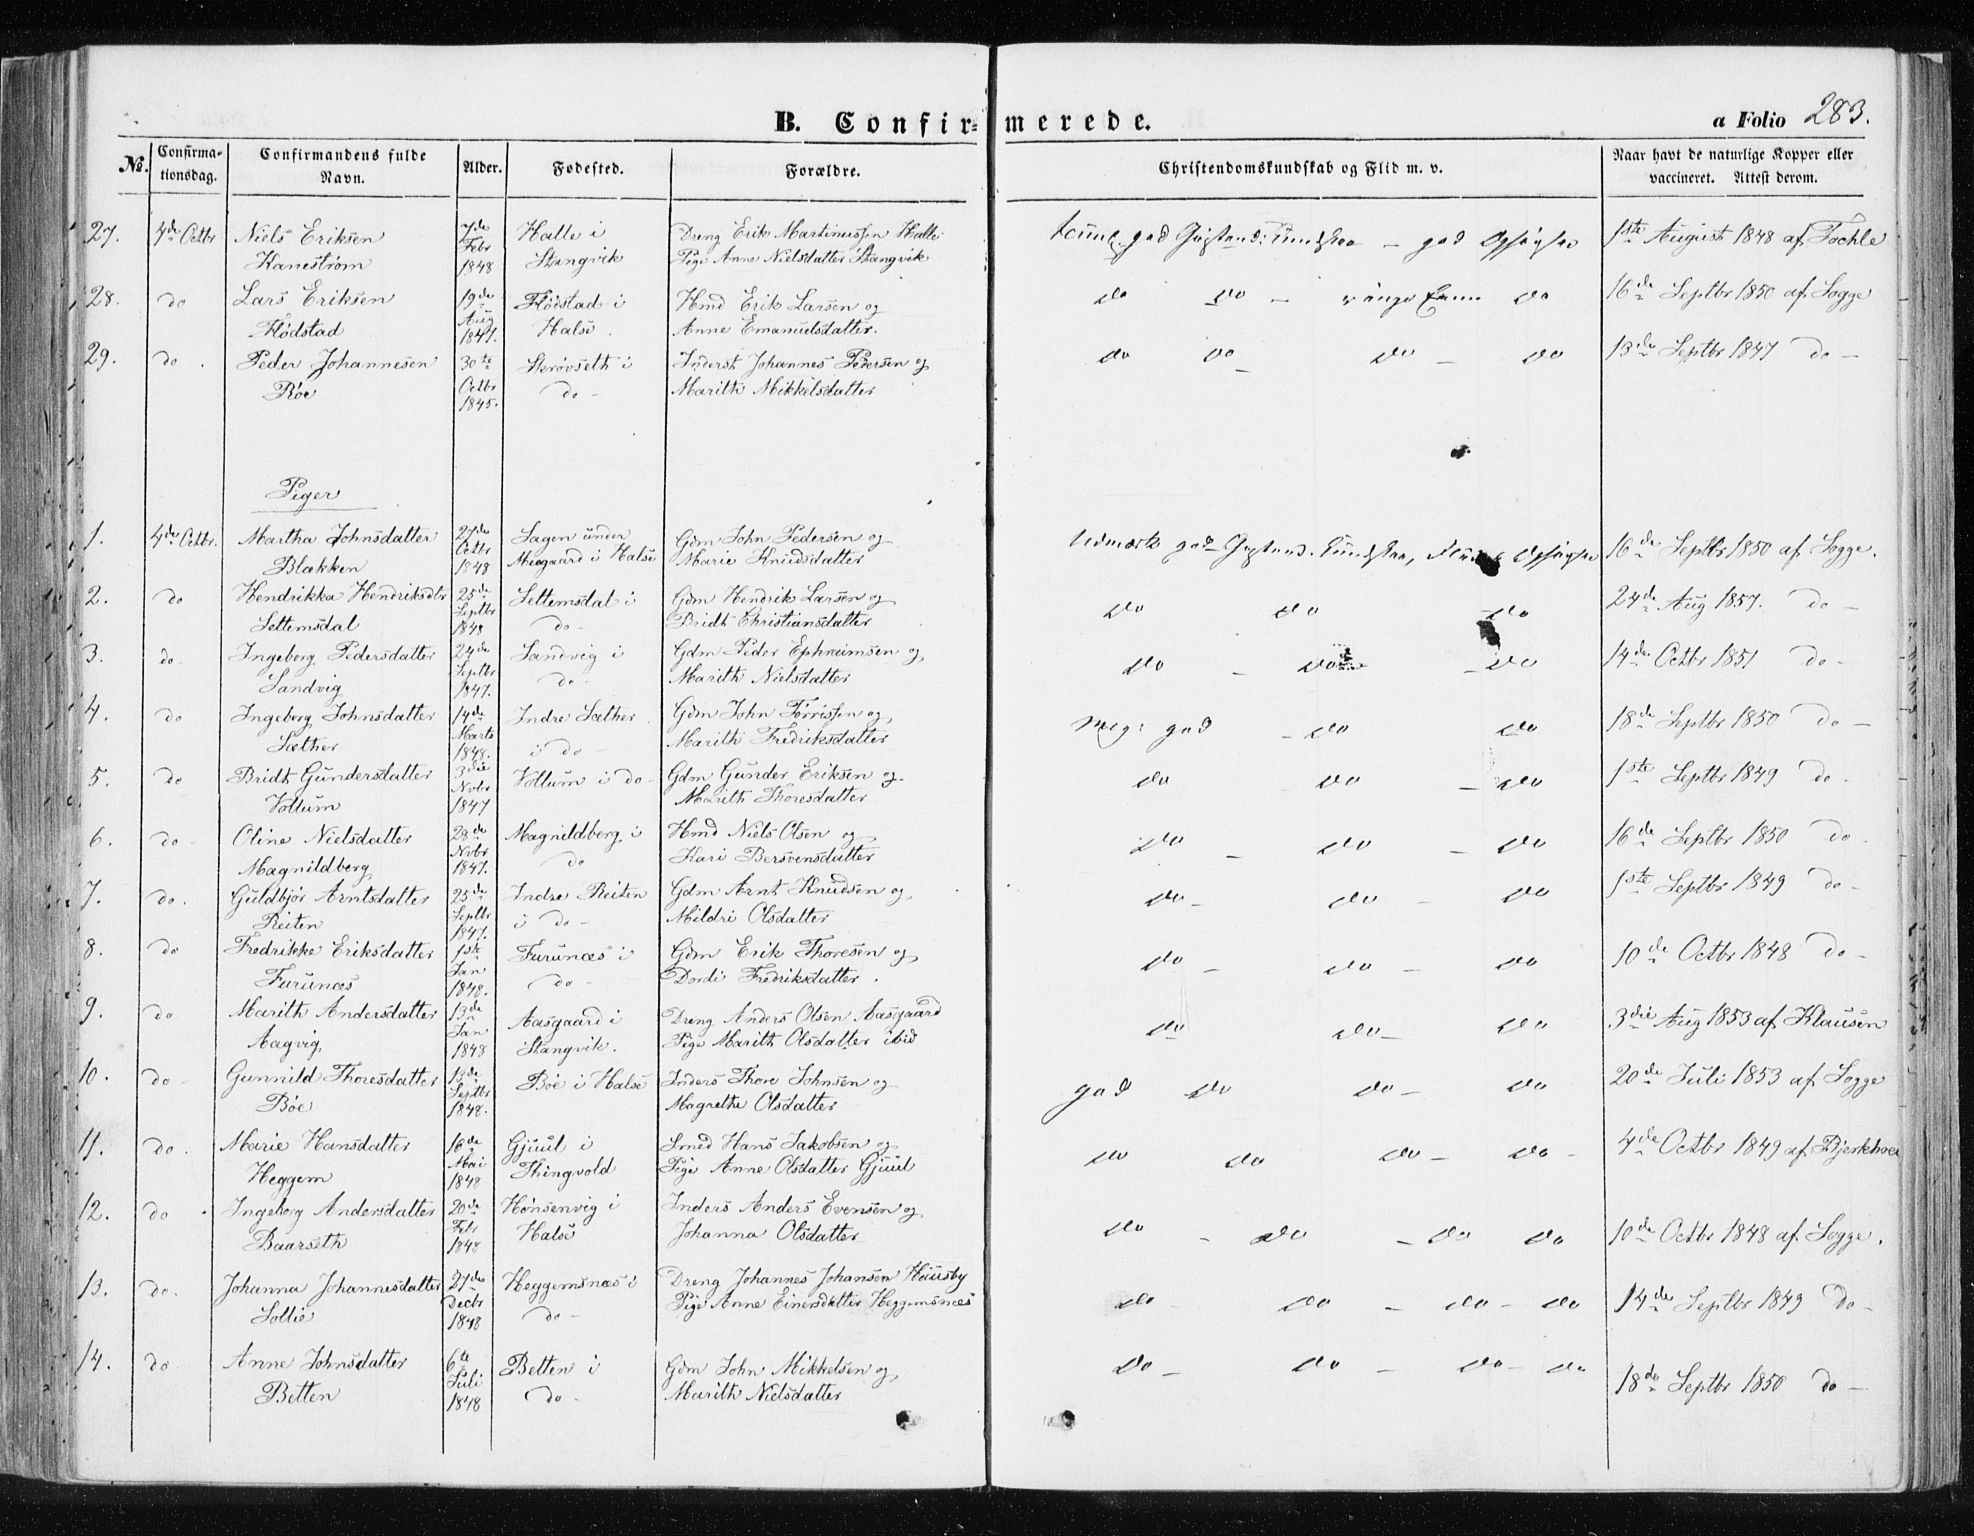 B. Confirmerede.
a Folio 283.
No. Confirmationsdag. Confirmandens fulde Navn. Alder. Fødested. Forældre. Christendomskundskab og Flid m. v. Naar havt de naturlige Kopper eller vaccineret. Attest derom.
27. 4de Octbr Niels Eriksen 7de Halle i Dreng Erik Martinussen Halle god 1ste August 1848 af
Kanestrøm Febr 1848 Stangvik Pige Anne Nielsdatter Stangvik
28. do Lars Eriksen 19de Flödstad i Hmd Erik Larsen og do do - do 16de Septbr 1850 af Sogge
Flödstad Aug 1847. Halse. Anne Emanuelsdatter.
29. do. Peder Johannesen 30te Skrövseth i Inderst Johannes Pedersen og do do - do - do 13de Septbr 1847 do -
Röe Octbr 1845. do - Marith Mikkelsdatter
Piger
1. 4de Octbr. Martha Johnsdatter 27de Sagen under Gdm John Pedersen og 16de Septbr 1850 af Sogge.
Blækken Octbr 1848 Moegaard i Halse Marie Knudsdatter
2. do Hendrikka Hendriksdtr 25de Settemsdal i Gdm Hendrik Larsen og do do - do 24de Aug 1857. do -
Settemsdal Septbr 1848 do - Bridt Christiansdatter
3. do. Ingeborg Pedersdatter 24de Sandvig i Gdm Peder Ephraimsen og do - do - do 14de Octbr 1851 do -
Sandvig Septbr 1847. do - Marith Nielsdatter
4. do Ingeborg Johnsdatter 14de Indre Sæther Gdm John Törrissen og meg: god - do do 18de Septbr 1850 do -
Sæther Marts 1848. i do - Marith Fredriksdatter
5. do Bridt Gundersdatter 3die Vollum i do - Gdm Gunder Eriksen og do do - do 1ste Septbr 1849 do -
Vollum Novbr 1847 Marith Thoresdatter
6. do - Oline Nielsdatter 28de Magnildberg i Hmd Niels Olsen og do - do - do 16de Septbr 1850 do.
Magnildberg Novbr 1847. do Kari Bersvensdatter
7. do. Guldbjör Arntsdatter 25de Indre Reiten Gdm Arnt Knudsen og do - do - do 1ste Septbr 1849 do -
Reiten Septbr 1847. i do - Mildri Olsdatter
8. do Fredrikke Eriksdatter 1ste Furunæs i Gdm Erik Thoresen og do - do - do 10de Octbr 1848 do -
Furunæs Jan 1848. do - Dordi Fredriksdatter.
9. do Marith Andersdatter 13de Aasgaard i Dreng Anders Olsen Aasgaard do do - do 3die Aug 1853 af Klausen
Aagvig Jan 1848 Stangvik. Pige Marith Olsdatter ibid
10. do - Gunnild Thoresdatter 13de Böe i Halse Inders Thore Johnsen og god do do - do 20de Juli 1853 af Sogge
Böe Septbr 1848. Magrethe Olsdatter
11. do. Marie Hansdatter 16de Gjuul i Smed Hans Jakobsen og do do do - do - 4de Octbr 1849 af
Heggem Mai 1848 Thingvold Pige Anne Olsdatter Gjuul
12. do. Ingeborg Andersdatter 20de Hönsenvig i Inders Anders Evensen og do - do - do do 10de Octbr 1848 af Sogge.
Baarseth Febr 1848 Halse Johanna Olsdatter
13. do. Johanna Johannesdatter 27de Heggemsnæs i Dreng Johannes Johansen Hausby do do - do - do 14de Septbr 1849 do -
Sollie Decbr 1848 do - Pige Anne Einersdatter Heggemsnæs
14. do Anne Johnsdatter 6te Betten i Gdm John Mikkelsen og do - do - do - do 18de Septbr 1850 do -
Betten Juli 1848 do - Marith Nielsdatter